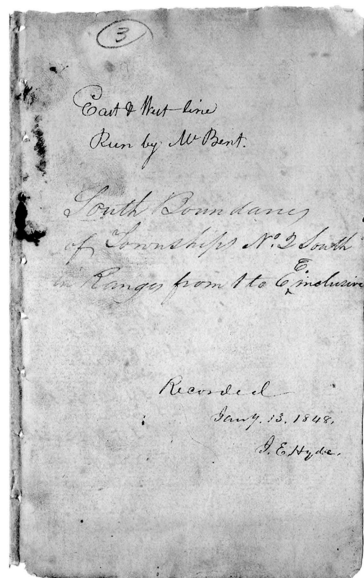 3
East & West line
Run by Mr Bent.
South Boundary
of Townships No. 2 South
in Ranges from 1 to 6 E inclusive
Recorded
Jany. 13. 1848.
J. E. Hyde.